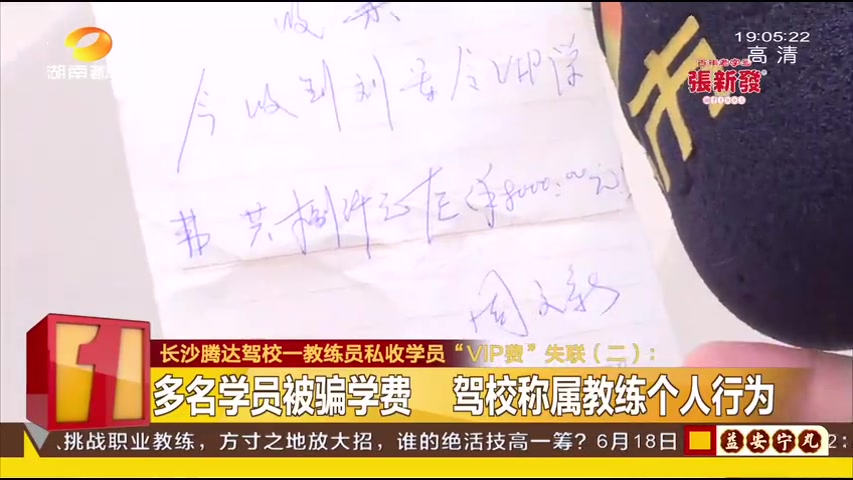 湖南都
19:05:22
高清
百年老字号
張新發
收条
今收到刘 VIP学
费 共捌仟元 (¥8000.00元)
周文新
长沙腾达驾校一教练员私收学员“VIP费”失联（二）：
1
多名学员被骗学费 驾校称属教练个人行为
、挑战职业教练，方寸之地放大招，谁的绝活技高一筹？6月18日
益安宁丸
2: